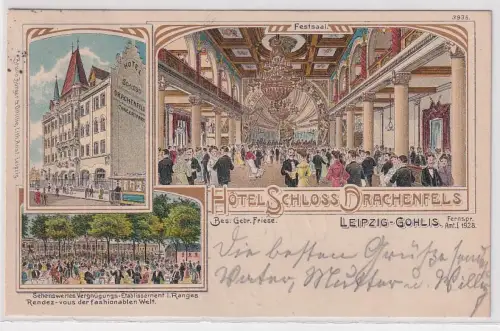 3935.
Festsaal.
HOTEL
SCHLOSS
DRACHENFELS
HÔTEL SCHLOSS DRACHENFELS
Bes: Gebr. Friese.
LEIPZIG-GOHLIS.
Fernspr.
Amt. I 1928.
Sehenswertes Vergnügungs-Etablissement I. Ranges
Rendez-vous der fashionablen Welt.
Die besten Grüße send
Vater, Mutter u. Willy